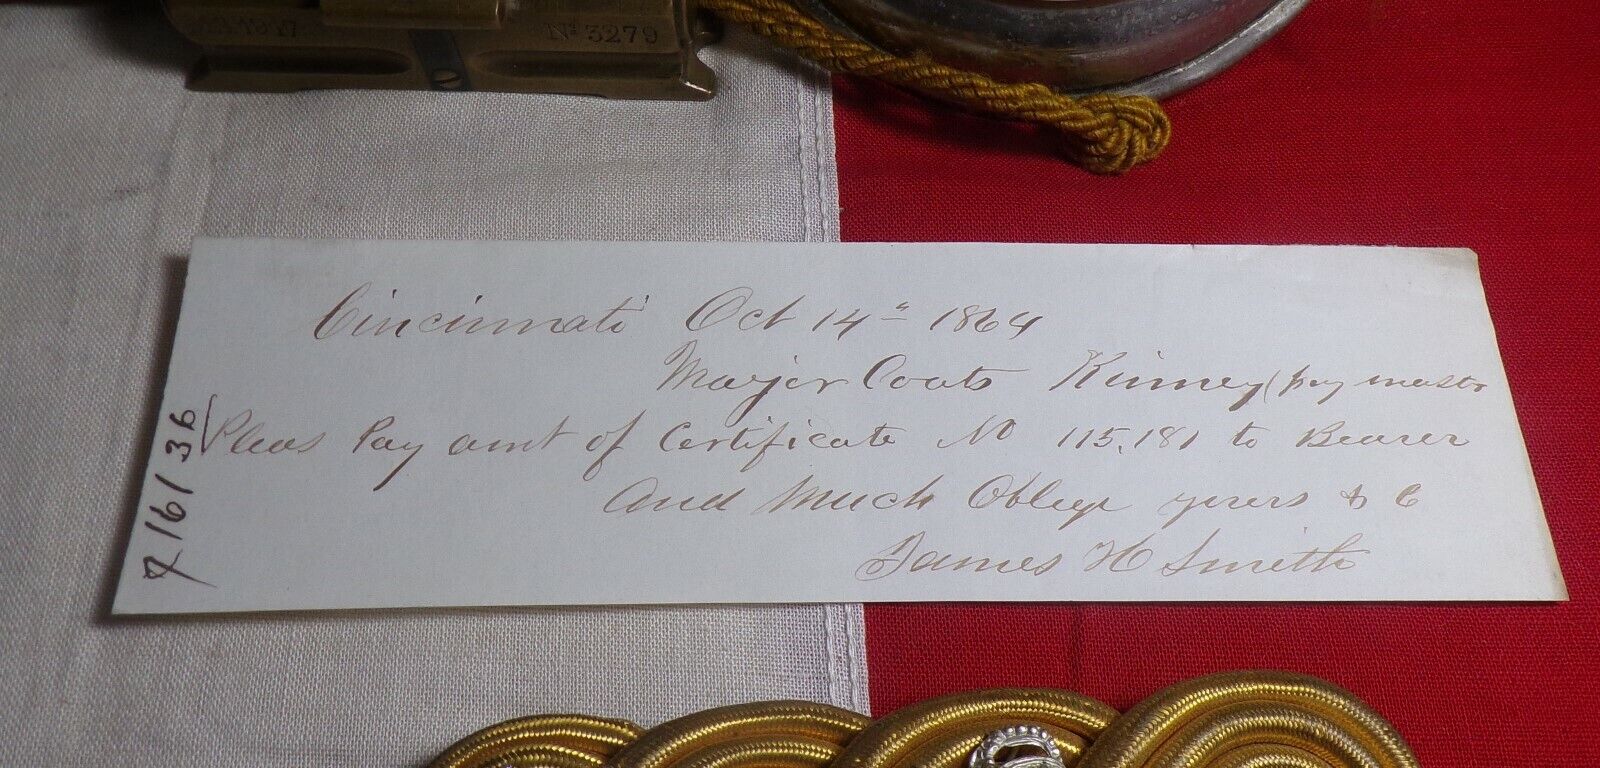 Nº 3279
Cincinnati Oct 14th 1864
Major Coats Kinney (pay master
Pleas Pay amt of Certificate No 115,181 to Bearer
And Much Oblege yours & C
James H Smith
161 36